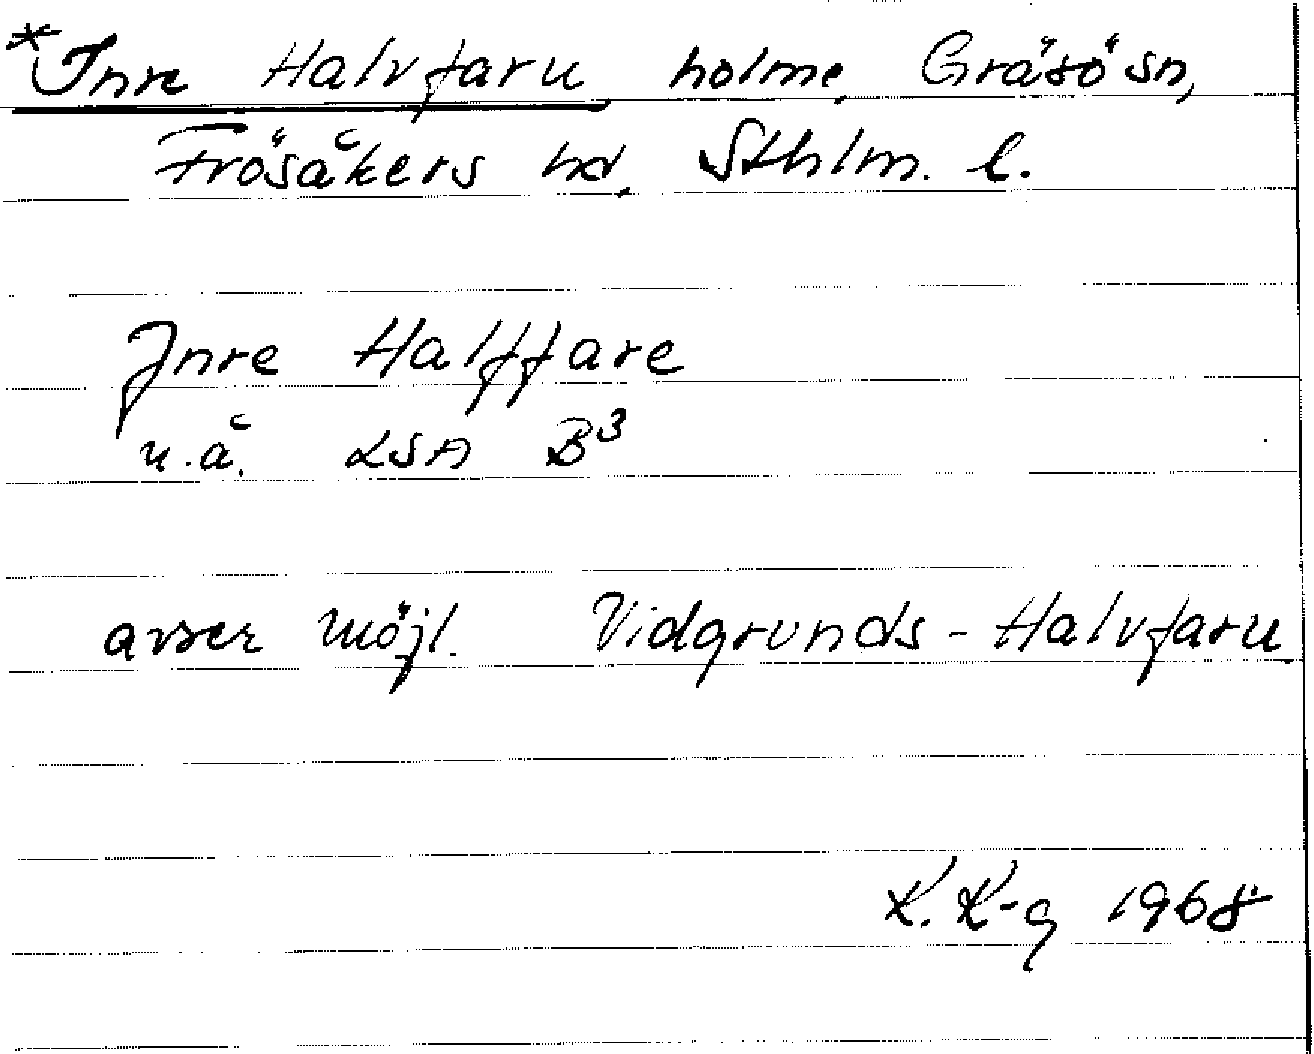 *Inre Halvfaru holme, Gräsö sn,
Frösåkers hd, Sthlm. l.
Inre Halffare
u.å. LSA B³
avser möjl. Vidgrunds-Halvfaru.
K. K-g 1968